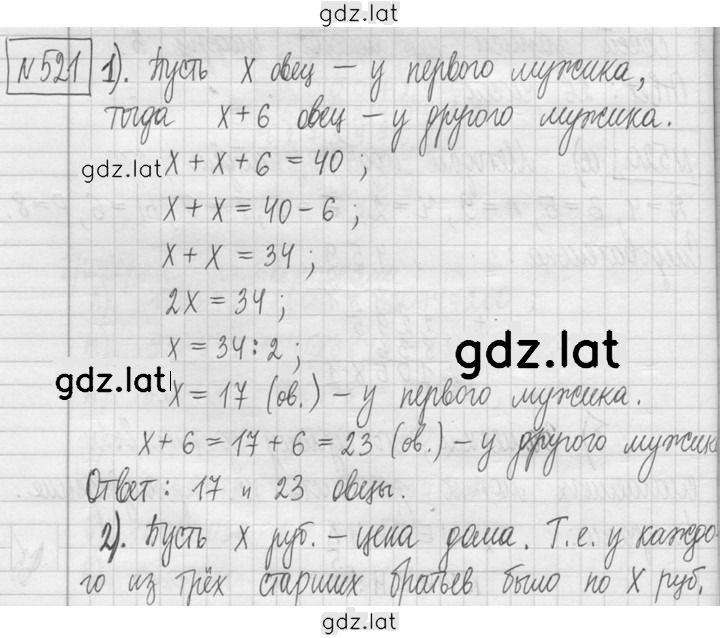 gdz.lat
№521 1). Пусть x овец – у первого мужика,
тогда x+6 овец – у другого мужика.
gdz.lat x + x + 6 = 40 ;
x + x = 40 - 6 ;
x + x = 34 ;
2x = 34 ;
x = 34 : 2 ;
gdz.lat
gdz.lat x = 17 (ов.) – у первого мужика.
x + 6 = 17 + 6 = 23 (ов.) – у другого мужик
Ответ : 17 и 23 овцы.
2). Пусть x руб. – цена дома. Т.е. у каждо-
го из трёх старших братьев было по x руб.
gdz.lat